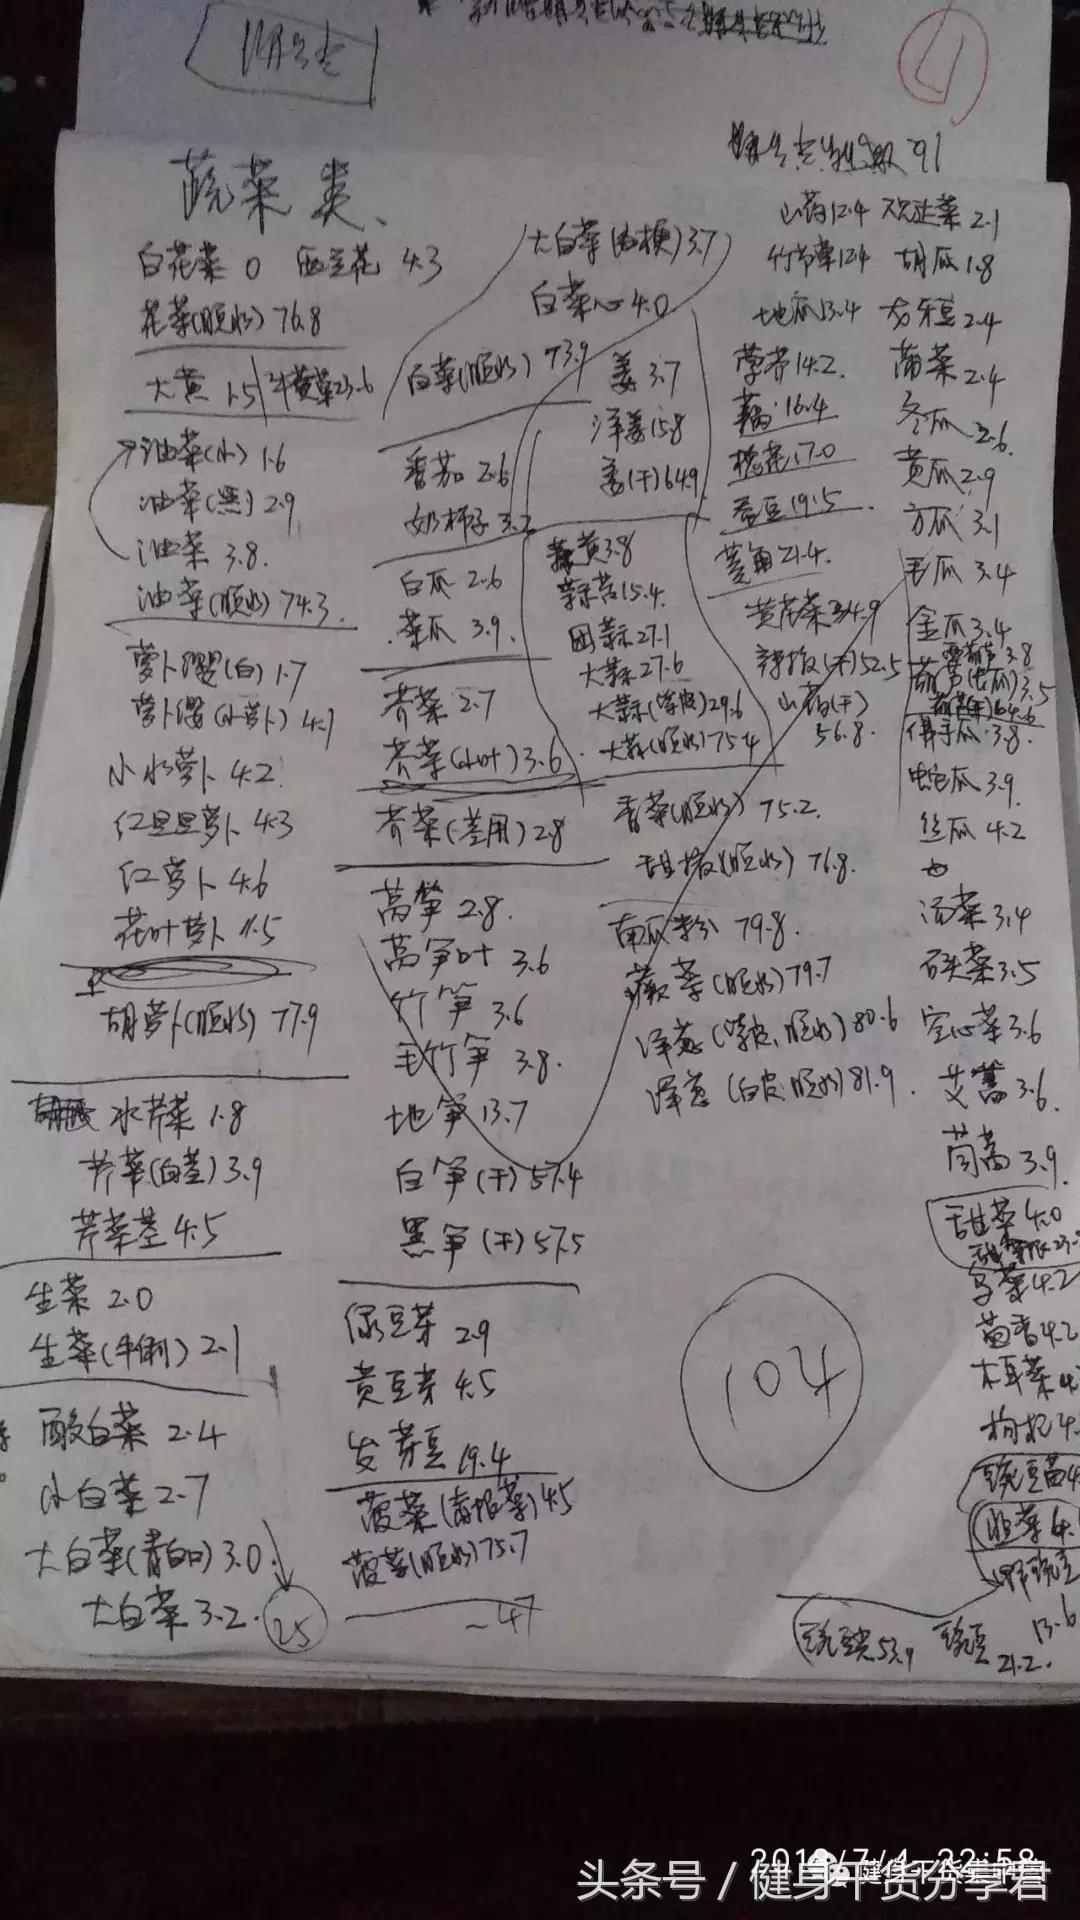 蔬菜类、
白花菜 0 西兰花 4.3
花菜(脱水) 76.8
大黄 1.5 牛黄菜23.6
油菜(小) 1.6
油菜(黑) 2.9
油菜 3.8.
油菜(脱水) 74.3.
萝卜缨(白) 1.7
萝卜缨(小萝卜) 4.1
小水萝卜 4.2
红旦旦萝卜 4.3
红萝卜 4.6
花叶萝卜 4.5
胡萝卜(脱水) 77.9
水芹菜 1.8
芹菜(白茎) 3.9
芹菜茎 4.5
生菜 2.0
生菜(牛俐) 2.1
酸白菜 2.4
小白菜 2.7
大白菜(青白口) 3.0.
大白菜 3.2.
25
大白菜(白梗) 3.7
白菜心 4.0
白菜(脱水) 73.9
番茄 2.6
奶柿子 3.2
白瓜 2.6
菜瓜 3.9.
荠菜 2.7
芥菜(小叶) 3.6.
芥菜(茎用) 2.8
莴笋 2.8.
莴笋叶 3.6
竹笋 3.6
毛竹笋 3.8.
地笋 13.7
白笋(干) 57.4
黑笋(干) 57.5
绿豆芽 2.9
黄豆芽 4.5
发芽豆 19.4
菠菜(赤根菜) 4.5
菠菜(脱水) 75.7
47
姜 3.7
洋姜 15.8
姜(干) 64.9
蒜黄 3.8
蒜苔 15.4.
田蒜 27.1
大蒜 27.6
大蒜(紫皮) 29.6
大蒜(脱水) 75.4
香菜(脱水) 75.2.
甜椒(脱水) 76.8.
南瓜粉 79.8.
蕨菜(脱水) 79.7
洋葱(紫皮、脱水) 80.6
洋葱(白皮、脱水) 81.9.
104
山药 12.4
竹节菜 12.4
地瓜 13.4
荸荠 14.2.
藕 16.4
槐花 17.0
蚕豆 19.5.
菱角 21.4.
黄花菜 34.9
辣椒(干) 52.5
山药(干)
56.8.
2.1
胡瓜 1.8
龙牙豆 2.4
蒲菜 2.4
冬瓜 2.6.
黄瓜 2.9
方瓜 3.1
毛瓜 3.4
金瓜 3.4
3.8
葫芦(长瓜) 3.5
64.6
佛手瓜 3.8.
蛇瓜 3.9.
丝瓜 4.2
汤菜 3.4
石头菜 3.5
空心菜 3.6
艾蒿 3.6.
茼蒿 3.9.
甜菜 4.0
4.2
茴香 4.2
木耳菜
枸杞
豌豆苗
韭菜
13.6
53.9
豌豆
21.2.
2018/7/4 22:58
头条号 / 健身干货分享君